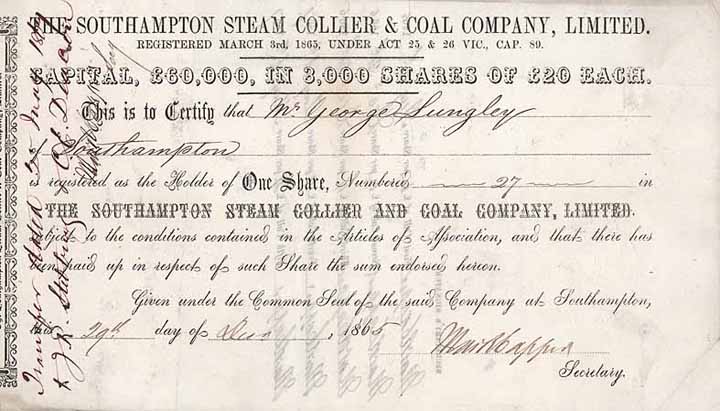 THE SOUTHAMPTON STEAM COLLIER & COAL COMPANY, LIMITED.
REGISTERED MARCH 3rd, 1865, UNDER ACT 25 & 26 VIC., CAP. 89.
CAPITAL, £60,000, IN 3,000 SHARES OF £20 EACH.
This is to Certify that Mr George Lungley
Southampton
is registered as the Holder of One Share, Numbered 27 in
THE SOUTHAMPTON STEAM COLLIER AND COAL COMPANY, LIMITED.
subject to the conditions contained in the Articles of Association, and that there has
been paid up in respect of such Share the sum endorsed hereon.
Given under the Common Seal of the said Company at Southampton,
29th day of 1865
Secretary.
Transfer